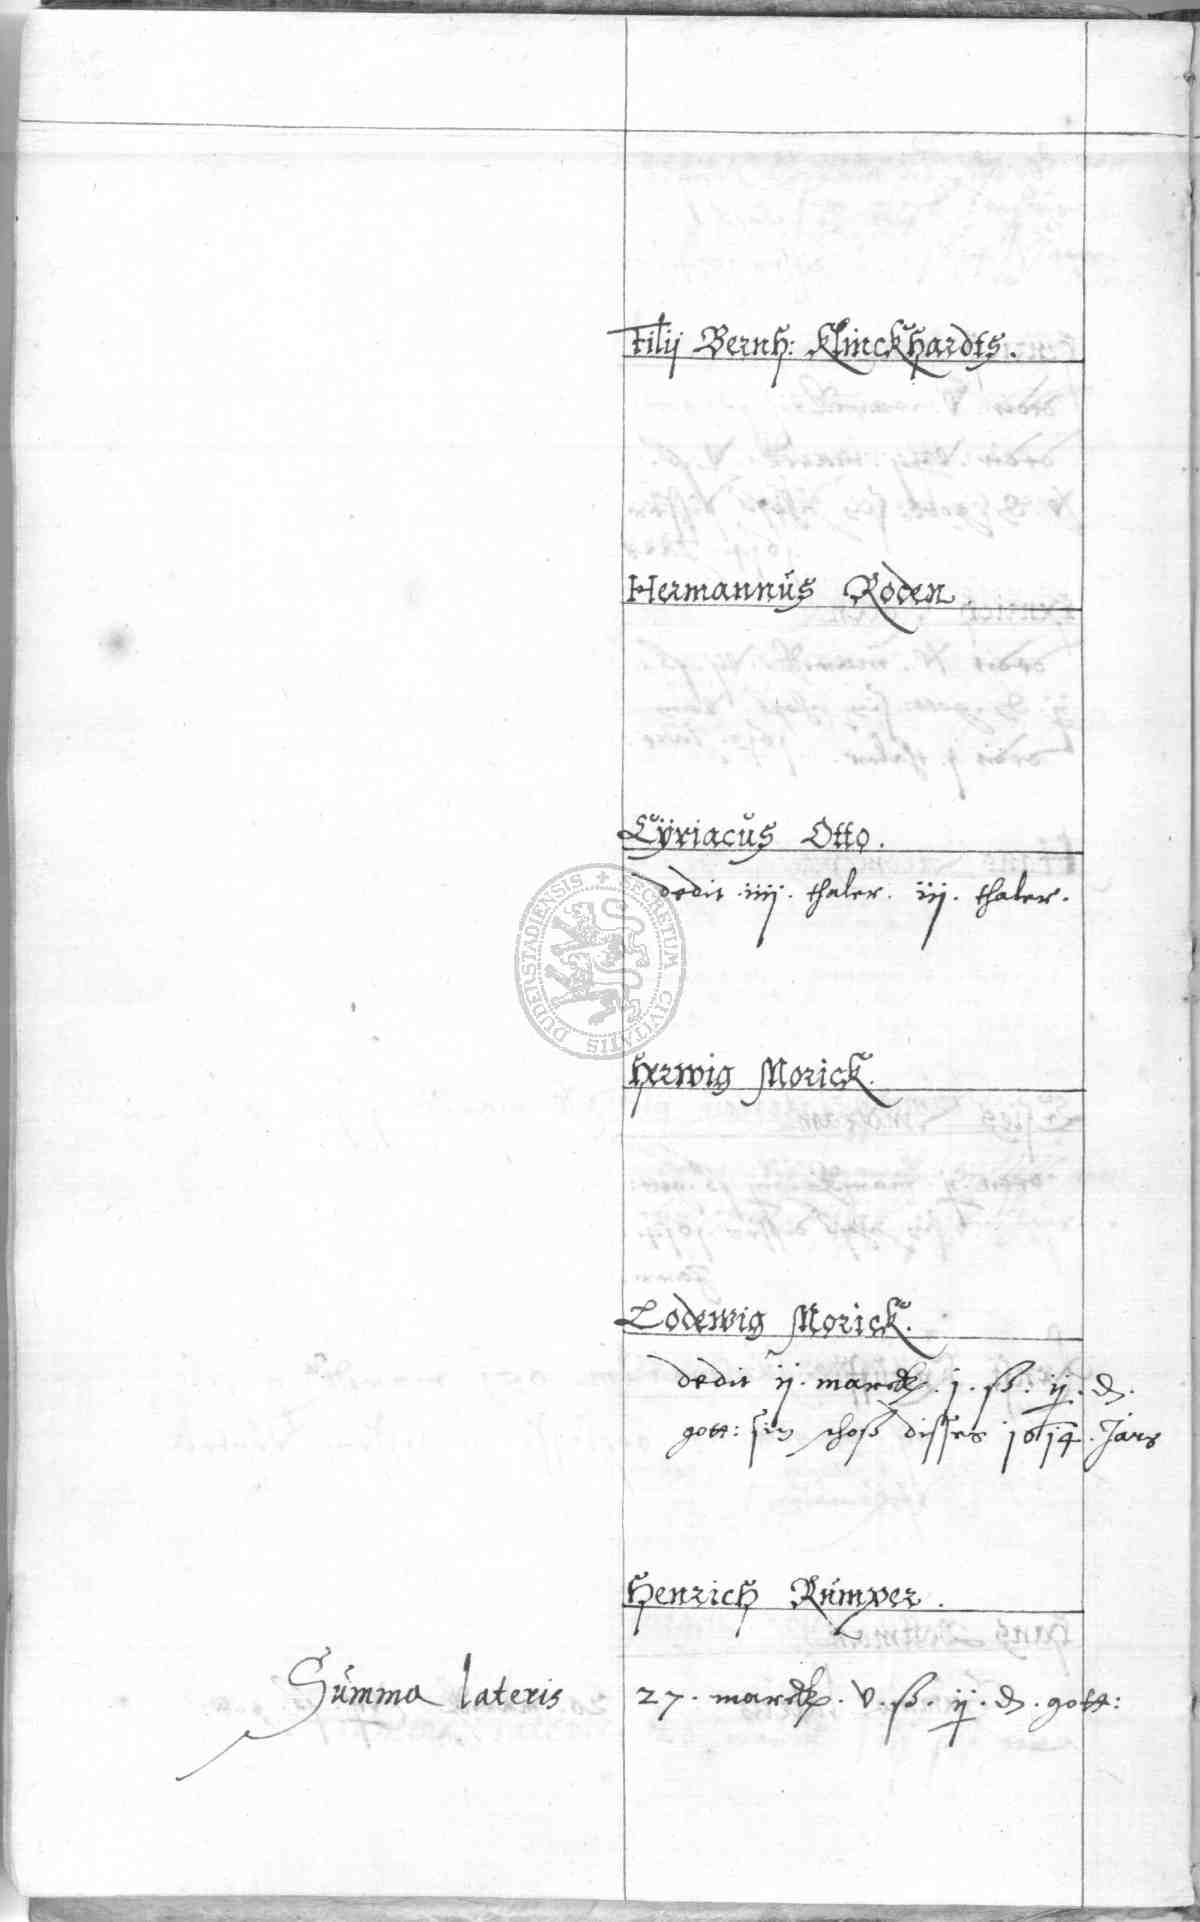 Filij Bernh: Klinckhardts.
Hermannus Roden.
Cÿriacus Otto.
dedit .iiij. thaler. iij. thaler.
SECRETUM CIVITATIS DUDERSTADIENSIS
Herwig Morick.
Lodewig Morick.
dedit ij. marck. j. ß. ij. d.
gott: sin schoß disses 1614. Jars
Henrich Rümper.
Summa lateris 27. marck. v. ß. ij. d. gott: